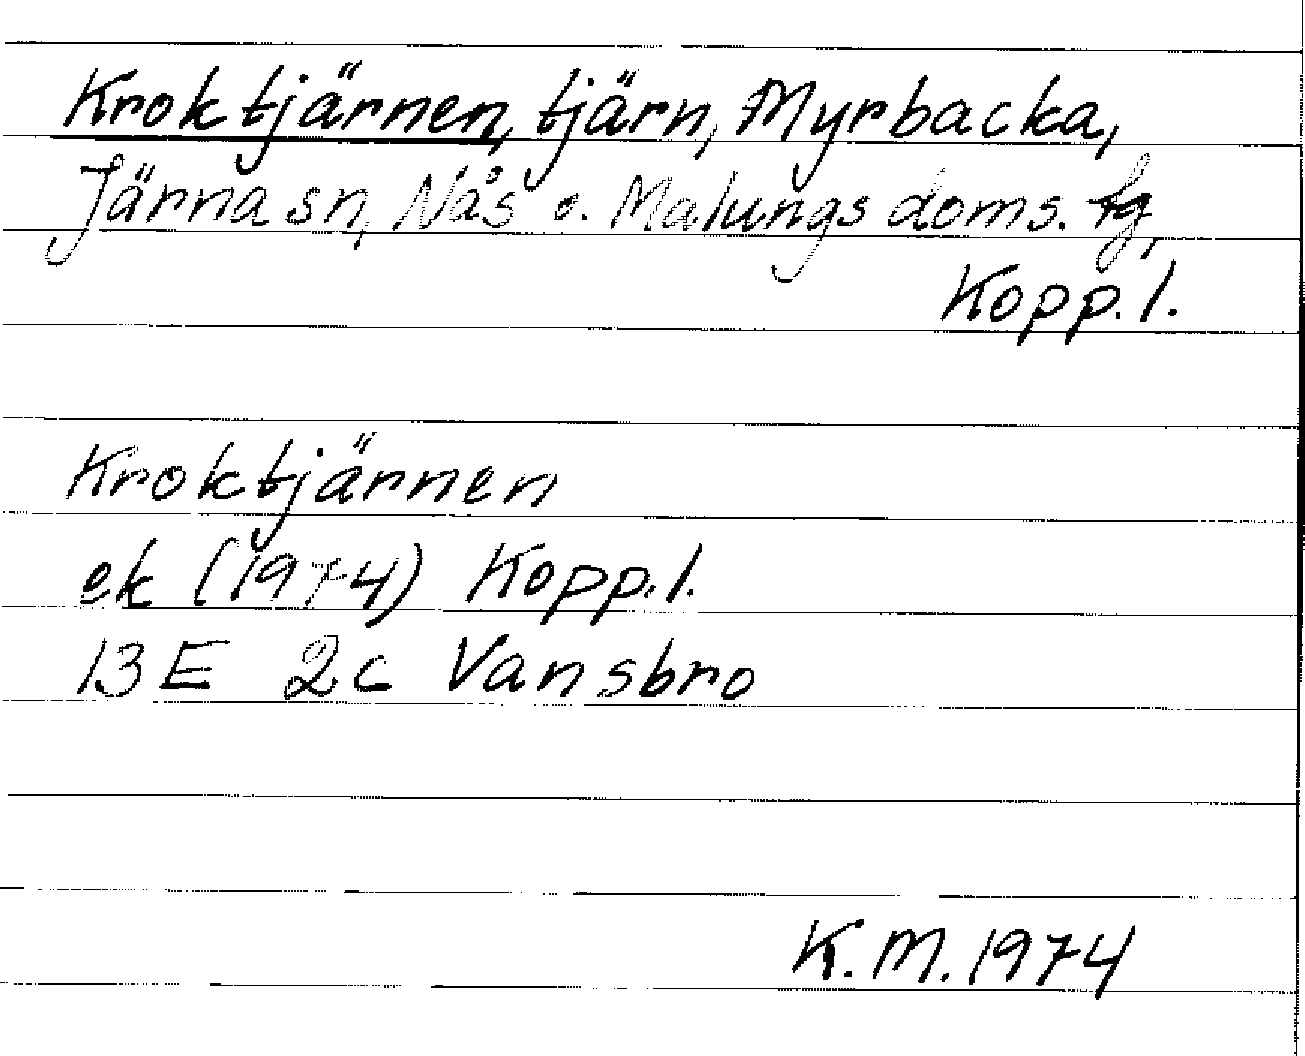 Kroktjärnen, tjärn, Myrbacka,
Järna sn, Nås o. Malungs doms. tg,
Kopp. l.
Kroktjärnen
ek (1974) Kopp. l.
13E 2c Vansbro
K. M. 1974